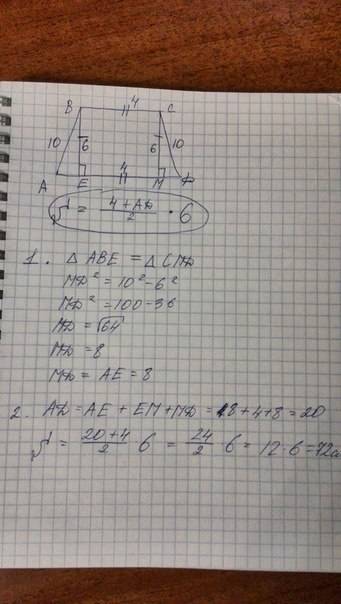 B 4 C
10 6 6 10
4
A E M D
S = \frac{4+AD}{2} · 6
1. △ ABE = △ CMD
MD² = 10² - 6²
MD² = 100 - 36
MD = √64
MD = 8
MD = AE = 8
2. AD = AE + EM + MD = 8 + 4 + 8 = 20
S = \frac{20+4}{2} · 6 = \frac{24}{2} · 6 = 12 · 6 = 72